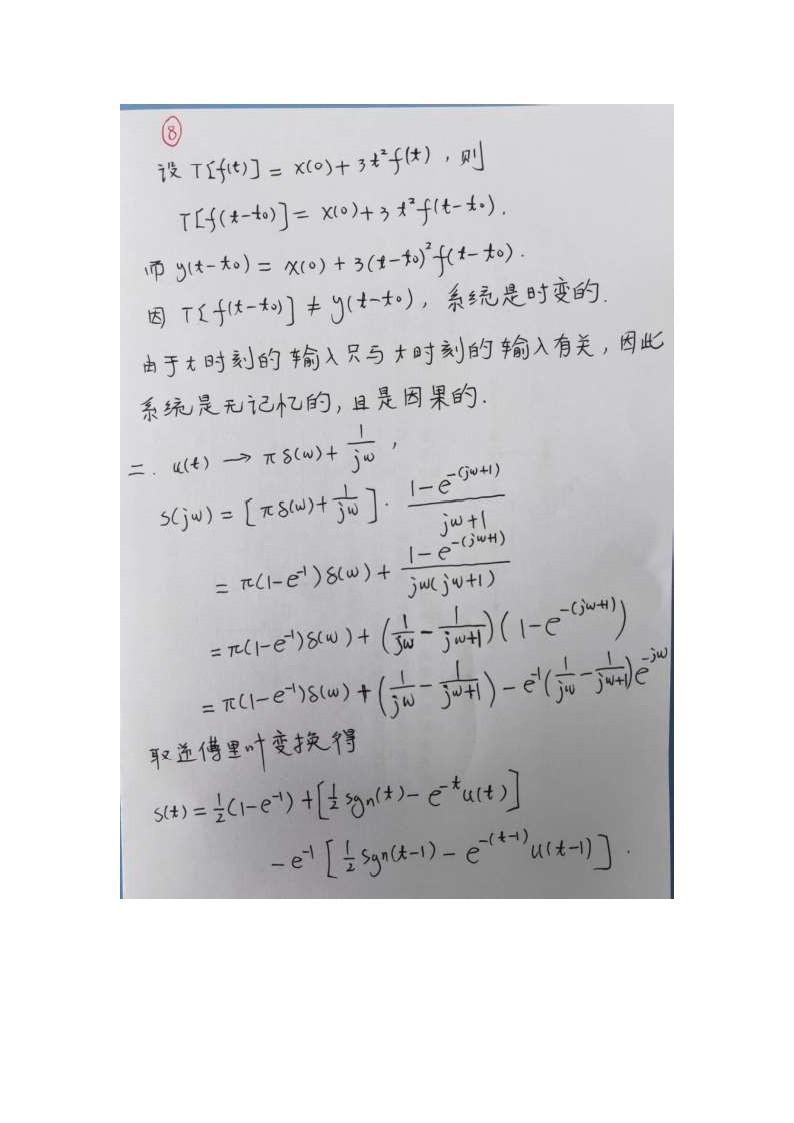 ⑧
设 T[f(t)] = x(0) + 3t²f(t), 则
T[f(t-t₀)] = x(0) + 3t²f(t-t₀).
而 y(t-t₀) = x(0) + 3(t-t₀)²f(t-t₀).
因 T[f(t-t₀)] ≠ y(t-t₀), 系统是时变的.
由于t时刻的输入只与t时刻的输入有关, 因此
系统是无记忆的, 且是因果的.
二. u(t) → πδ(ω) + 1/jω ,
S(jω) = [πδ(ω) + 1/jω] · (1-e^{-(jω+1)})/(jω+1)
= π(1-e⁻¹)δ(ω) + (1-e^{-(jω+1)})/(jω(jω+1))
= π(1-e⁻¹)δ(ω) + (1/jω - 1/(jω+1))(1-e^{-(jω+1)})
= π(1-e⁻¹)δ(ω) + (1/jω - 1/(jω+1)) - e⁻¹(1/jω - 1/(jω+1))e^{-jω}
取逆傅里叶变换得
s(t) = ½(1-e⁻¹) + [½sgn(t) - e^{-t}u(t)]
- e⁻¹[½sgn(t-1) - e^{-(t-1)}u(t-1)].